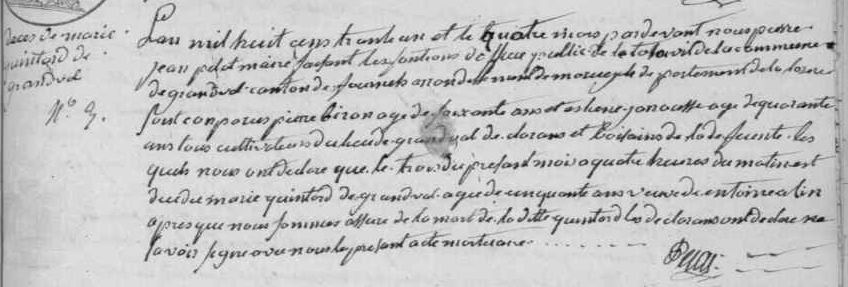 deces de marie
quintard de
grandval
N.º 3.
L'an mil huit cens trante un et le quatre mars pardevant nous pierre
jean maire faisant les fontions d'officie public de de la commune
de grandval canton de fournels arrondissement de departement de la lozere
sont conparus pierre biron age de soixante ans et age de quarante
ans tous cultivateurs du lieu de grandval declarans et voisains de la defuente les
quels nous ont declare que le trois du presant mois a quatre hueres du matin est
marie quintard de grandval agée de cinquante ans veuve de
apres que nous sommes assure de la mort de la ditte quintard les declarans ont declare ne
savoir signe avec nous le presant acte mortuaire